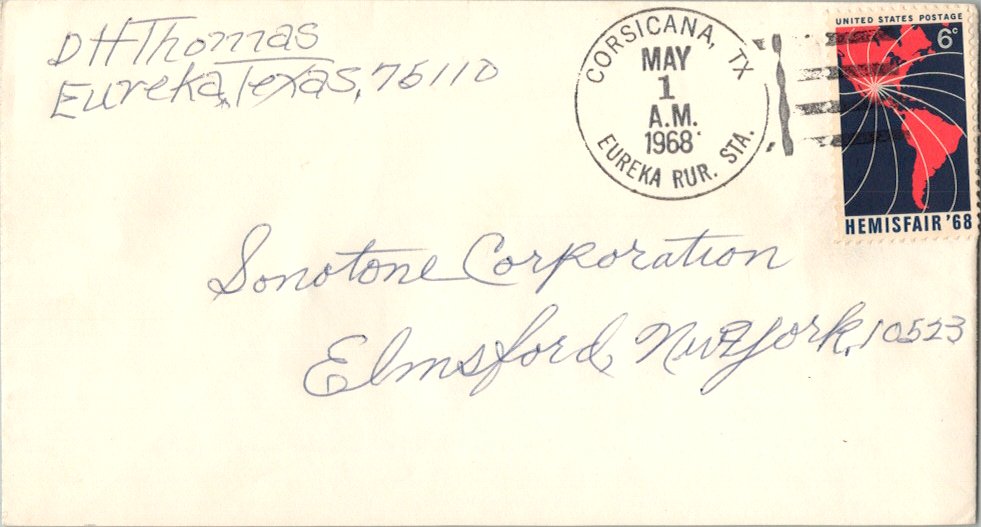 D H Thomas
Eureka, Texas, 75110
CORSICANA, TX
MAY
1
A.M.
1968
EUREKA RUR. STA.
UNITED STATES POSTAGE
6c
HEMISFAIR '68
Sonotone Corporation
Elmsford, New York, 10523